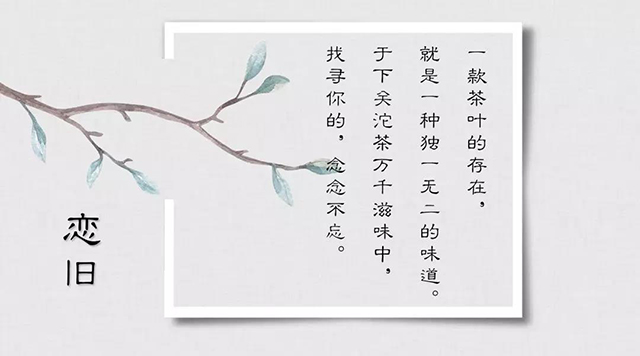 一款茶叶的存在，
就是一种独一无二的味道。
于下关沱茶万千滋味中，
找寻你的，念念不忘。
恋旧